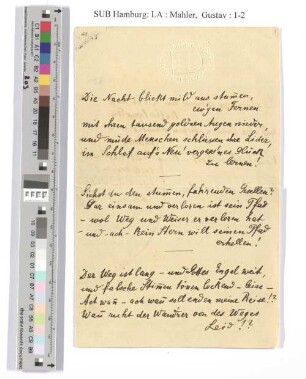 SUB Hamburg: LA : Mahler, Gustav : 1-2
Die Nacht blickt mild aus stummen,
ewgen Fernen
mit ihren tausend goldenen Augen nieder,
und müde Menschen schliessen ihre Lider,
im Schlaf auf's Neu' vergess'nes Glück
zu lernen!
Siehst du den stummen, fahrenden Gesellen?
Gar einsam und verloren ist sein Pfad
- wol Weg und Weiser er verloren hat
- und - ach - kein Stern will seinen Pfad
erhellen!
Der Weg ist lang - und Gottes Engel weit,
und falsche Stimmen tönen lockend - leise -
Ach wann - ach wann soll enden meine Reise!?
Wann ruht der Wandrer von des Weges
Leid!?